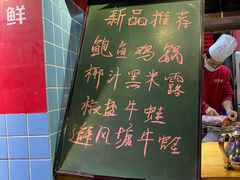 鲜
新品推荐
鲍鱼鸡锅
椰汁黑米露
椒盐牛蛙
避风塘牛蛙